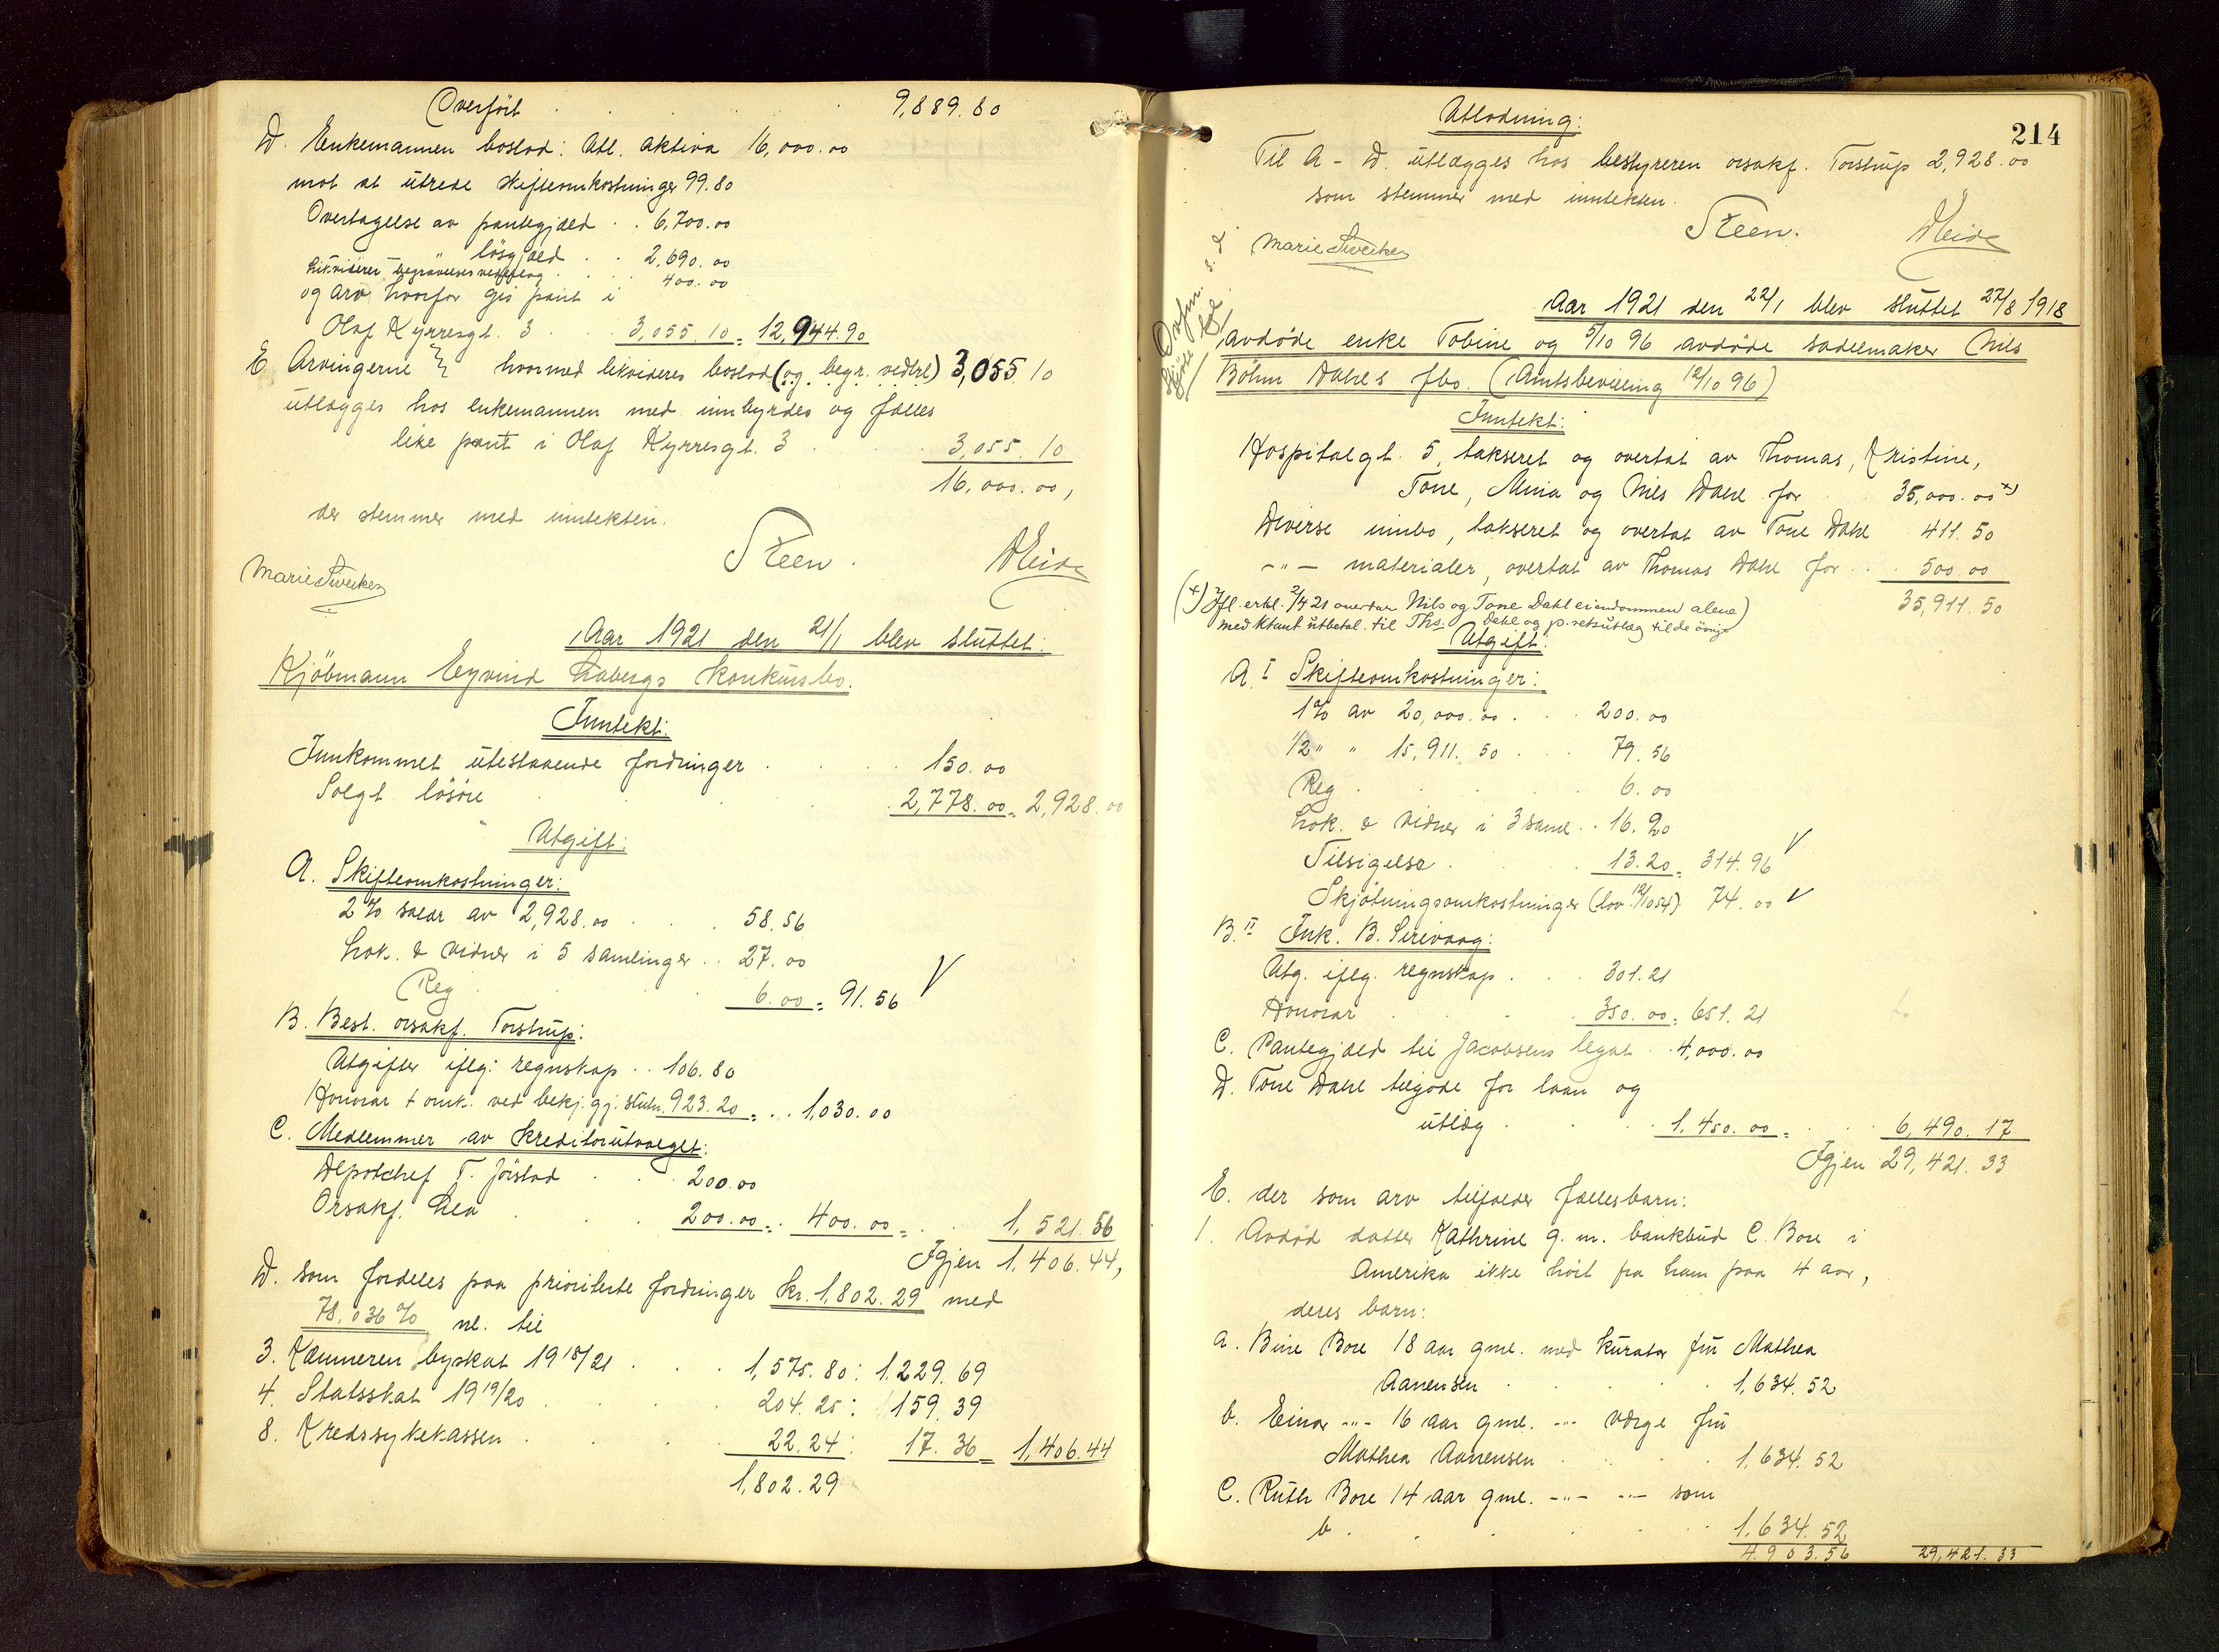 Overført . . . . 9,889.80
D. Enkemannen boslod: Utl. aktiva 16,000.00
mot at utrede skifteomkostninger 99.80
Overtagelse av pantegjæld . . 6,700.00
" løsgjæld . . 2,690.00
Likviderer begravelsesvederlag . . . . 400.00
og arv hvorfor gis pant i
Olaf Kyrresgt. 3 . . . 3,055.10 = 12,944.90
E. Arvingerne hvormed likvideres boslod (og begr. vedtrl) 3,055.10
utlægges hos enkemannen med innbyrdes og fælles
like pant i Olaf Kyrresgt. 3 . . 3,055.10
16,000.00,
der stemmer med inntekten.
Steen. Meide
Marie Sivertsen
Aar 1921 den 21/1 blev sluttet:
Kjøbmann Eyvind Aabergs konkursbo.
Inntekt:
Innkommet utestaaende fordringer . . . 150.00
Solgt løsøre . . . 2,778.00 = 2,928.00
Utgift:
A. Skifteomkostninger:
2% salær av 2,928.00 . . 58.56
Lok. & vidner i 5 samlinger . . 27.00
Reg . . . 6.00 = 91.56 V
B. Best. orsakf. Torstrup:
Utgifter iflg: regnskap . . 106.80
Honorar + omk. ved bekj. gj. slutn. 923.20 = . . 1,030.00
C. Medlemmer av kreditorutvalget:
Depotchef T. Jørstad . . . 200.00
Orsakf. Lea . . . 200.00 = . 400.00 = . . 1,521.56
Igjen 1,406.44,
D. som fordeles paa prioriterte fordringer kr. 1,802.29 med
78,036% nl. til
3. Kæmneren byskat 1918/21 . . . 1,575.80: 1.229.69
4. Statsskat 1919/20 . . . 204.25: 159.39
8. Kredssykekassen . . . 22.24: 17.36 = 1,406.44
1,802.29
214
Utlodning:
Til A - D. utlægges hos bestyreren orsakf. Torstrup 2,928.00
som stemmer med inntekten.
Steen. Meide
Marie Sivertsen
Aar 1921 den 22/1 blev sluttet 27/8 1918
avdøde enke Tobine og 5/10 96 avdøde sadelmaker Nils
Böhm Dahls fbo. (Amtsbevilling 12/10 96)
Inntekt:
Hospitalgt. 5, takseret og overtat av Thomas, Kristine,
Tone, Mina og Nils Dahl for 35,000.00 x)
Diverse innbo, takseret og overtat av Tone Dahl 411.50
-"- materialer, overtat av Thomas Dahl for . . . 500.00
35,911.50
(x) Ifl. erkl. 2/4 21 overtar Nils og Tone Dahl eiendommen alene)
med ktant utbetal. til Ths. Dahl og p. retsutlæg til de øvrige
Utgift:
A. I Skifteomkostninger:
1% av 20,000.00 . . . 200.00
1/2 " " 15,911.50 . . . 79.56
Reg . . . 6.00
Lok. & vidner i 3 saml . . 16.20
Tilsigelse . . . 13.20 = 314.96 V
Skjøtningsomkostninger (lov 12/10 54) 74.00 V
B. II Ink. B. Sirivaag:
Utg. iflg. regnskap . . . 301.21
Honorar . . . 350.00 = 651.21
C. Pantegjæld til Jacobsens legat . . 4,000.00
D. Tone Dahl tilgode for laan og
utlæg . . . 1,450.00 = . . 6,490.17
Igjen 29,421.33
E. der som arv tilfalder fællesbarn:
1. Avdød datter Kathrine g. m. bankbud C. Bore i
Amerika ikke hørt fra ham paa 4 aar,
deres barn:
a. Bine Bore 18 aar gml. med kurator fru Mathea
Aanensen . . . 1,634.52
b. Einar -"- 16 aar gml. -"- værge fru
Mathea Aanensen . . . 1,634.52
C. Ruth Bore 14 aar gml. -"- -"- som
b . . . 1,634.52
4.903.56 29,421.33